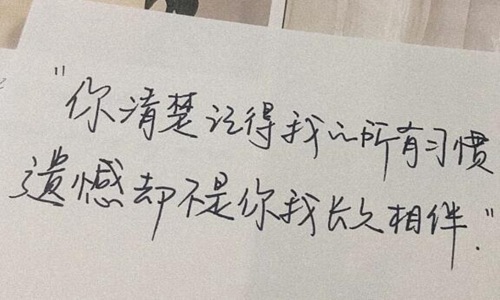 "你清楚记得我的所有习惯
遗憾却不是你我长久相伴."